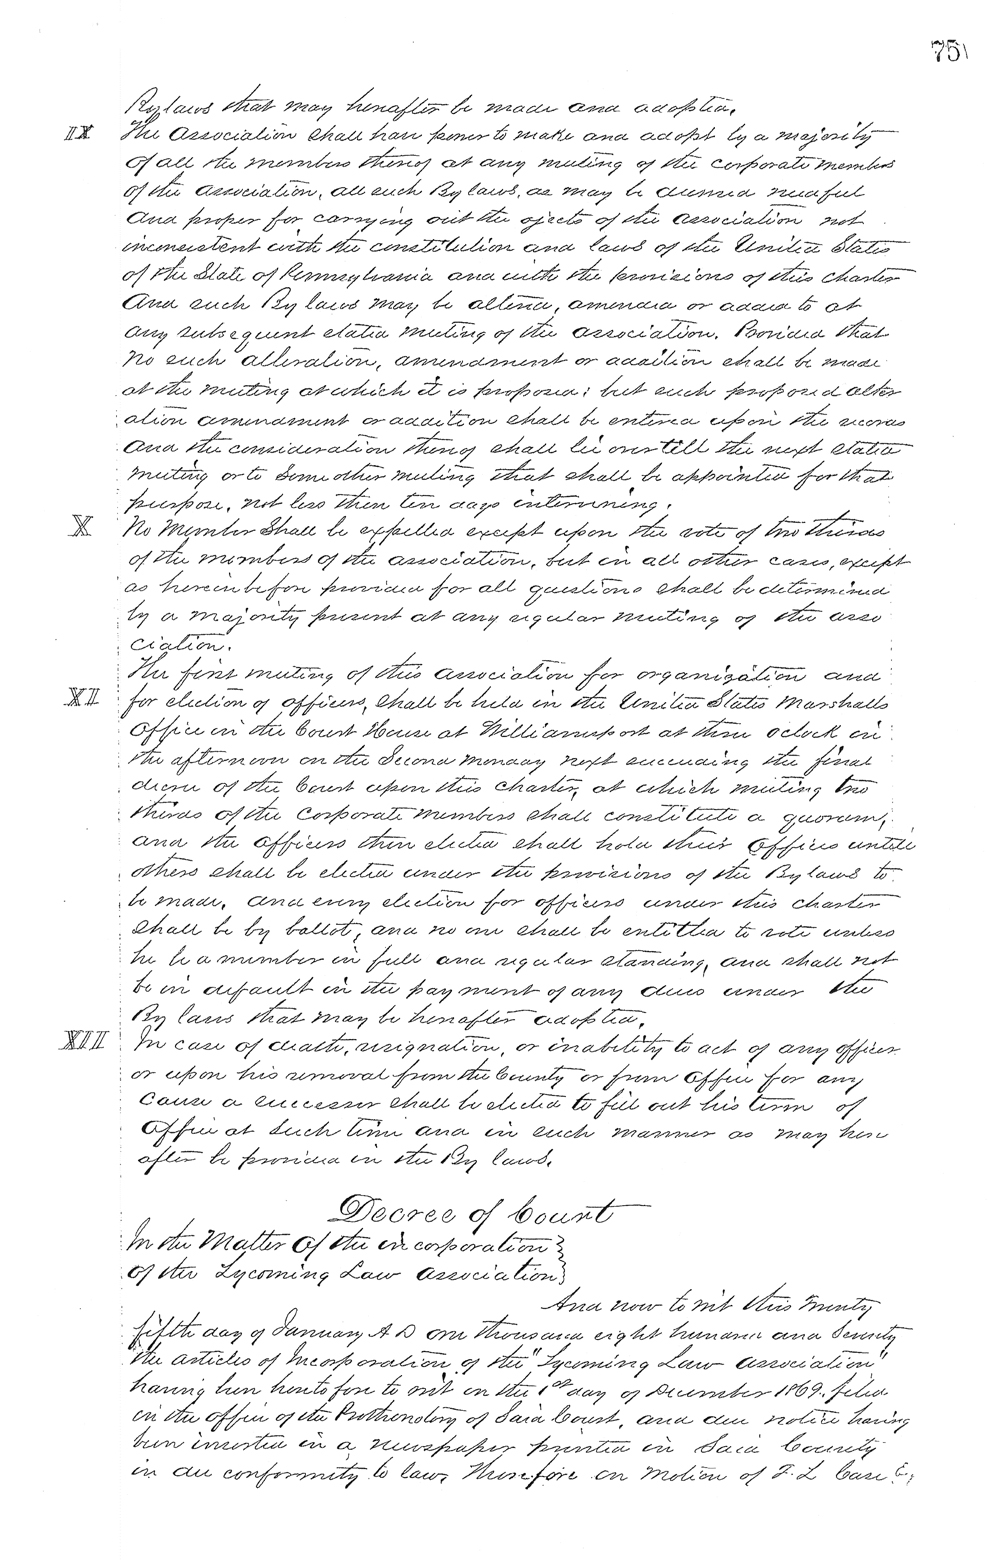 751
By laws that may hereafter be made and adopted.
IX The Association shall have power to make and adopt by a majority
of all the members thereof at any meeting of the corporate members
of the association, all such By laws, as may be deemed needful
and proper for carrying out the ojects of the association not
inconsistent with the constitution and laws of the United States
of the State of Pennsylvania and with the provisions of this charter
And such By laws may be altered, amended or added to at
any subsequent stated meeting of the association. Provided that
no such alteration, amendment or addition shall be made
at the meeting at which it is proposed; but such proposed alter
ation amendment or addition shall be entered upon the records
and the consideration thereof shall lie over till the next stated
meeting or to some other meeting that shall be appointed for that
purpose, not less then ten days intervening.
X No Member Shall be expelled except upon the vote of two thirds
of the members of the association, but in all other cases, except
as herein before provided for all questions shall be determined
by a majority present at any regular meeting of the asso
ciation.
The first meeting of this association for organization and
XI for election of officers, shall be held in the United States Marshalls
Office in the Court House at Williamsport at three oclock in
the afternoon on the Second Monday next succeeding the final
decree of the Court upon this charter, at which meeting two
thirds of the corporate members shall constitute a quorum,
and the officers then elected shall hold their offices untill
others shall be elected under the provisions of the By laws to
be made, and every election for officers under this charter
shall be by ballot, and no one shall be entitled to vote unless
he be a member in full and regular standing, and shall not
be in default in the payment of any dues under the
By laws that may be hereafter adopted.
XII In case of death, resignation, or inability to act of any officer
or upon his removal from the County or from office for any
cause a successor shall be elected to fill out his term of
office at such time and in such manner as may here
after be provided in the By laws.
Decree of Court
In the Matter of the incorporation
of the Lycoming Law Association
And now to wit this Twenty
fifth day of January A D one thousand eight hundred and Seventy
the articles of Incorporation of the "Lycoming Law Association"
having been heretofore to wit on the 1st day of December 1869 filed
in the office of the Prothonotary of Said Court, and due notice having
been inserted in a newspaper printed in Said County
in due conformity to law, Therefore on motion of F. L Case